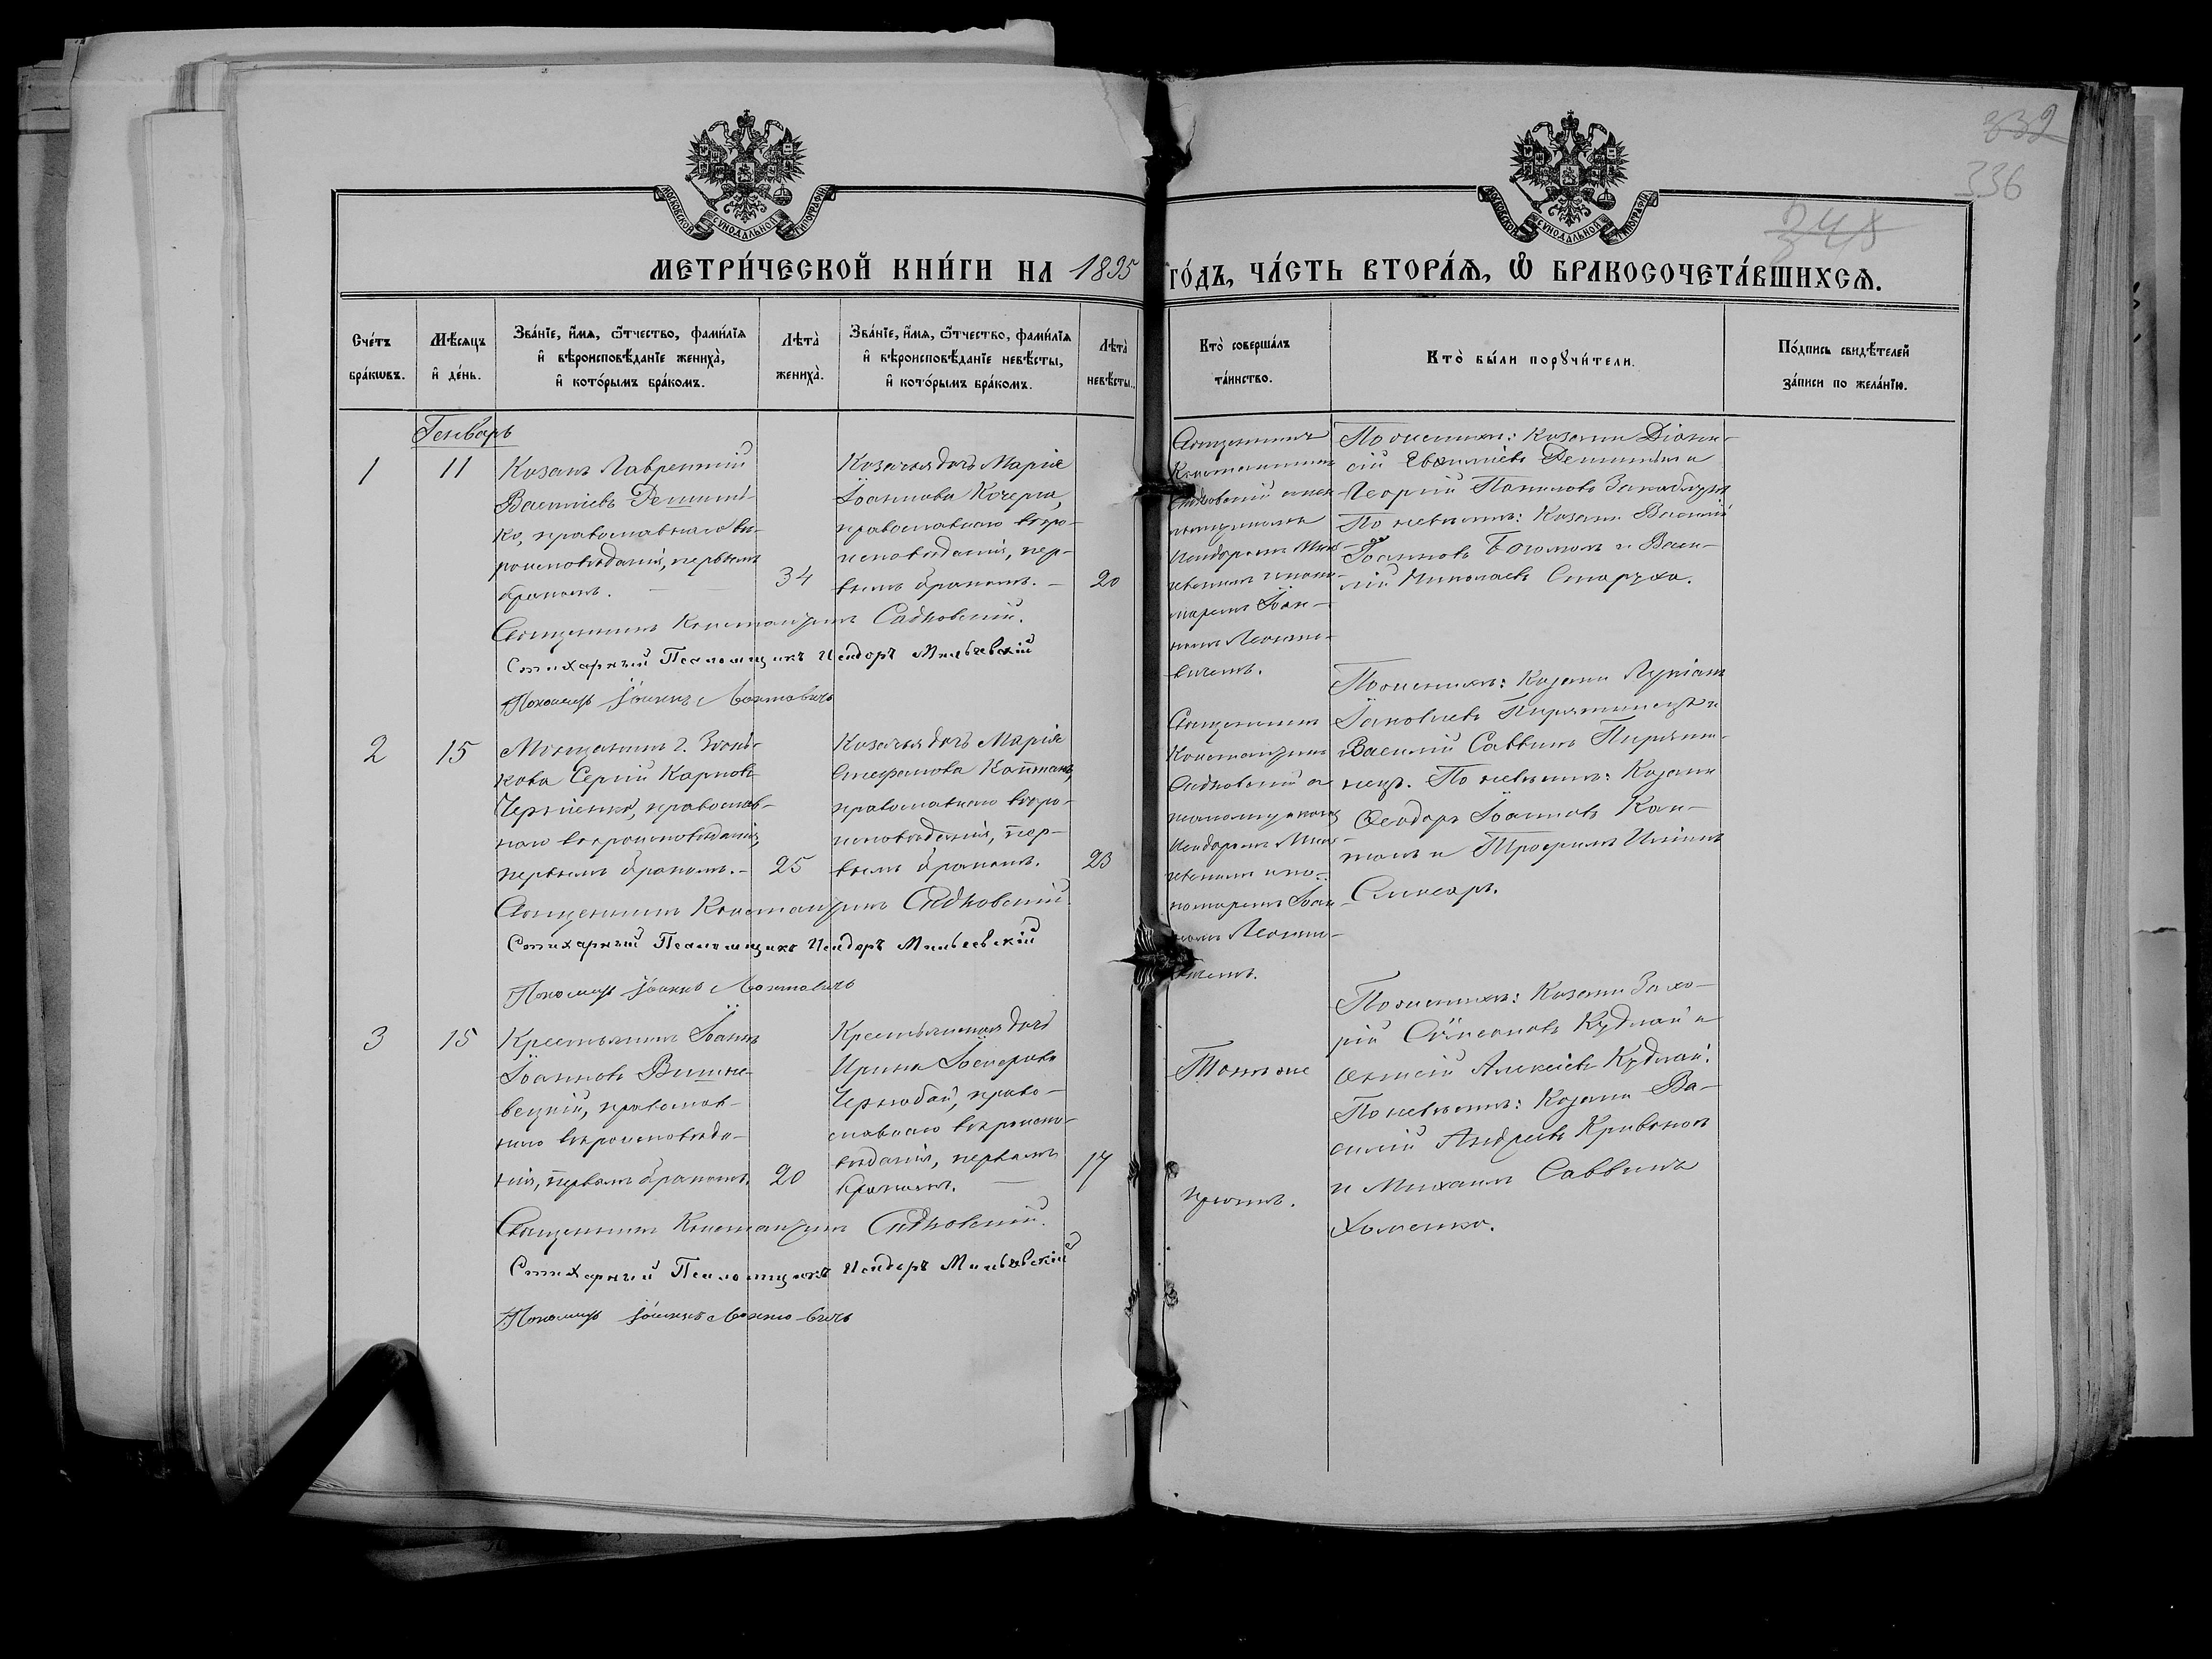 332
336
248
МОСКОВСКОЙ СѴНОДАЛЬНОЙ ТИПОГРАФІИ
МОСКОВСКОЙ СѴНОДАЛЬНОЙ ТИПОГРАФІИ
МЕТРИ́ЧЕСКОЙ КНИ́ГИ НА 1895 ГО́ДЪ, ЧА́СТЬ ВТОРА́Ѧ, Ѽ БРАКОСОЧЕТА́ВШИХСѦ.
Сче́тъ
бра́кѡвъ.
Мѣ́сѧцъ
и҆ де́нь.
Зва́нїе, и҆́мѧ, ѻ҆́тчество, фами́лїѧ
и҆ вѣроисповѣ́данїе жениха̀,
и҆ кото́рымъ бра́комъ.
Лѣта̀
жениха̀.
Зва́нїе, и҆́мѧ, ѻ҆́тчество, фами́лїѧ
и҆ вѣроисповѣ́данїе невѣ́сты,
и҆ кото́рымъ бра́комъ.
Лѣта̀
невѣ́сты.
Кто̀ соверша́лъ
та́инство.
Кто̀ бы́ли порꙋчи́тели.
По́дпись свидѣ́телей
за́писи по жела́нїю.
Генварь
1
11
Козакъ Лаврентій
Василіевъ Демиде́н-
ко, православнаго вѣ-
роисповѣданія, первымъ
бракомъ.
34
Козачья дочь Марія
Іоаннова Кочерга,
православнаго вѣро-
исповѣданія, пер-
вымъ бракомъ. —
20
Священникъ
Константинъ
Садковскій съ
псаломщикомъ
Исидоромъ Миль-
чевскимъ и поно-
маремъ Іоан-
номъ Леонто-
вичемъ.
По женихѣ: Козаки Діони-
сій
Георгій
По невѣстѣ: Козаки Василій
Іоанновъ Богомолъ и Васи-
лій Николаевъ Старуха.
Священникъ Константинъ Садковскій.
Стихарный Псаломщикъ Исидоръ Мильчевскій
Пономарь Іоаннъ Леонтовичъ
2
15
Мѣщанинъ г. Зѣнь-
кова Сергій Карповъ
Черненко, православ-
наго вѣроисповѣданія,
первымъ бракомъ. —
25
Козачья дочь Марія
Стефанова Кантанъ,
православнаго вѣро-
исповѣданія, пер-
вымъ бракомъ.
23
Священникъ
Константинъ
Садковскій съ
псаломщикомъ
Исидоромъ Миль-
чевскимъ и по-
номаремъ Іоан-
номъ Леонто-
вичемъ.
По женихѣ: Козаки Лукіанъ
Іаковлевъ Пирятинецъ и
Василій Саввинъ Пирятин-
нецъ. По невѣстѣ: Козаки
Ѳеодоръ Іоанновъ Кан-
танъ и Трофимъ Ильинъ
Слисарь.
Священникъ Константинъ Садковскій.
Стихарный Псаломщикъ Исидоръ Мильчевскій
Пономарь Іоаннъ Леонтовичъ
3
15
Крестьянинъ Іоаннъ
Іоанновъ Вишне-
вецкій, православ-
наго вѣроисповѣда-
нія, первымъ бракомъ.
20
Крестьянская дочь
Ирина
Чернобай, право-
славнаго вѣроиспо-
вѣданія, первымъ
бракомъ. —
17
Тотъ же
причтъ.
По женихѣ: Козаки Заха-
рій Сѵмеоновъ Кудлай и
Алексѣевъ Кудлай.
По невѣстѣ: Козаки Ва-
силій Андреевъ
и Михаилъ Саввинъ
Хоменко.
Священникъ Константинъ Садковскій.
Стихарный Псаломщикъ Исидоръ Мильчевскій
Пономарь Іоаннъ Леонтовичъ